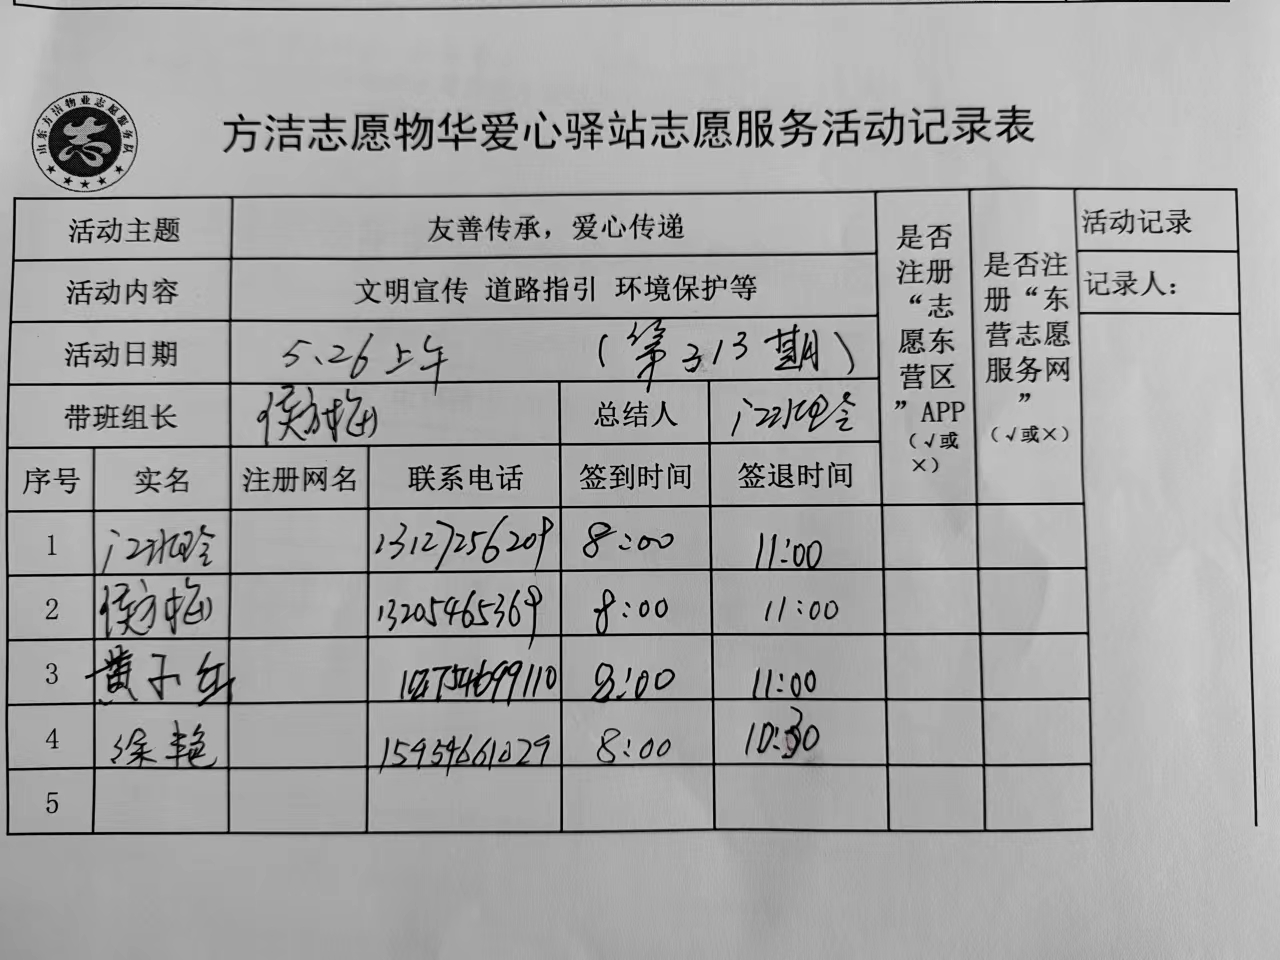 山东方洁物业志愿服务队
志
方洁志愿物华爱心驿站志愿服务活动记录表
活动主题 友善传承，爱心传递 是否注册“志愿东营区”APP（√或×） 是否注册“东营志愿服务网”（√或×） 活动记录
活动内容 文明宣传 道路指引 环境保护等 记录人：
活动日期 5.26上午 （第313期）
带班组长 侯方梅 总结人
序号 实名 注册网名 联系电话 签到时间 签退时间
1 13127256209 8:00 11:00
2 侯方梅 13205465369 8:00 11:00
3 黄子年 8:00 11:00
4 徐艳 15954661029 8:00 10:30
5